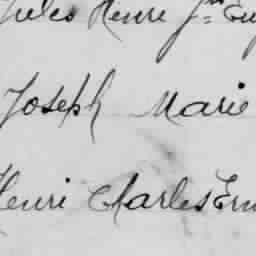 Jules Henri Jn Eu
Joseph Marie
Henri Charles Ern